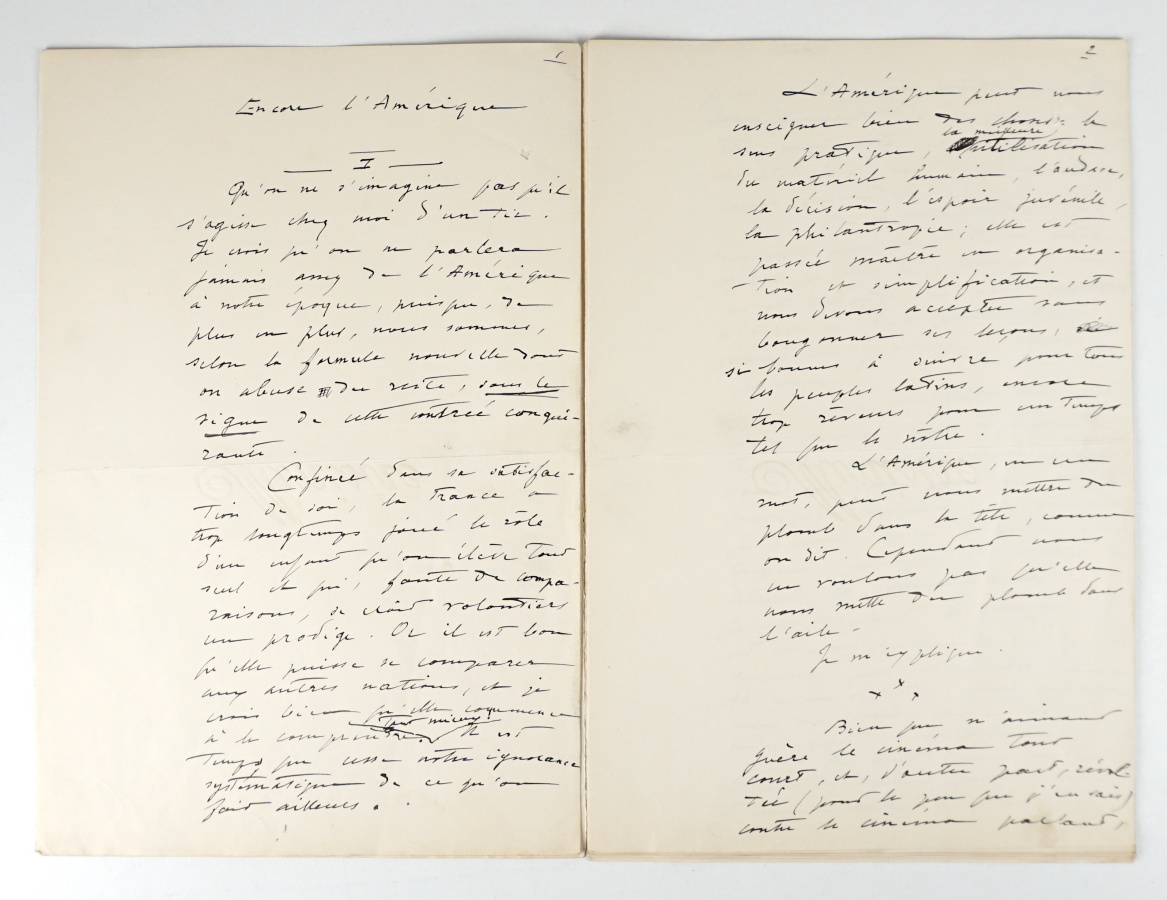 1
Encore l'Amérique
I
Qu'on ne s'imagine pas qu'il
s'agisse chez moi d'un tic.
Je crois qu'on ne parlera
jamais assez de l'Amérique
à notre époque, puisque, de
plus en plus, nous sommes,
selon la formule nouvelle dont
on abuse du reste, sous le
signe de cette contrée conqué-
rante.
Confinée dans sa satisfac-
tion de soi, la France a
trop longtemps joué le rôle
d'un enfant qu'on élève tout
seul et qui, faute de compa-
raisons, se croit volontiers
un prodige. Or il est bon
qu'elle puisse se comparer
aux autres nations, et je
crois bien qu'elle commence
à le comprendre. Tant mieux! Il est
temps que cesse notre ignorance
systématique de ce qu'on
fait ailleurs.
2
L'Amérique peut nous
enseigner bien des choses: le
sens pratique, la meilleure utilisation
du matériel humain, l'audace,
la décision, l'espoir juvénile,
la philantropie; elle est
passée maître en organisa-
tion et simplification, et
nous devons accepter sans
bougonner ses leçons,
si bonnes à suivre pour tous
les peuples latins, encore
trop rêveurs pour un temps
tel que le nôtre.
L'Amérique, en un
mot, peut nous mettre du
plomb dans la tête, comme
on dit. Cependant nous
ne voulons pas qu'elle
nous mette du plomb dans
l'aile.
Je m'explique.
x x x
Bien que n'aimant
guère le cinéma tout
court, et, d'autre part, révol-
tée (pour le peu que j'en sais)
contre le cinéma parlant,